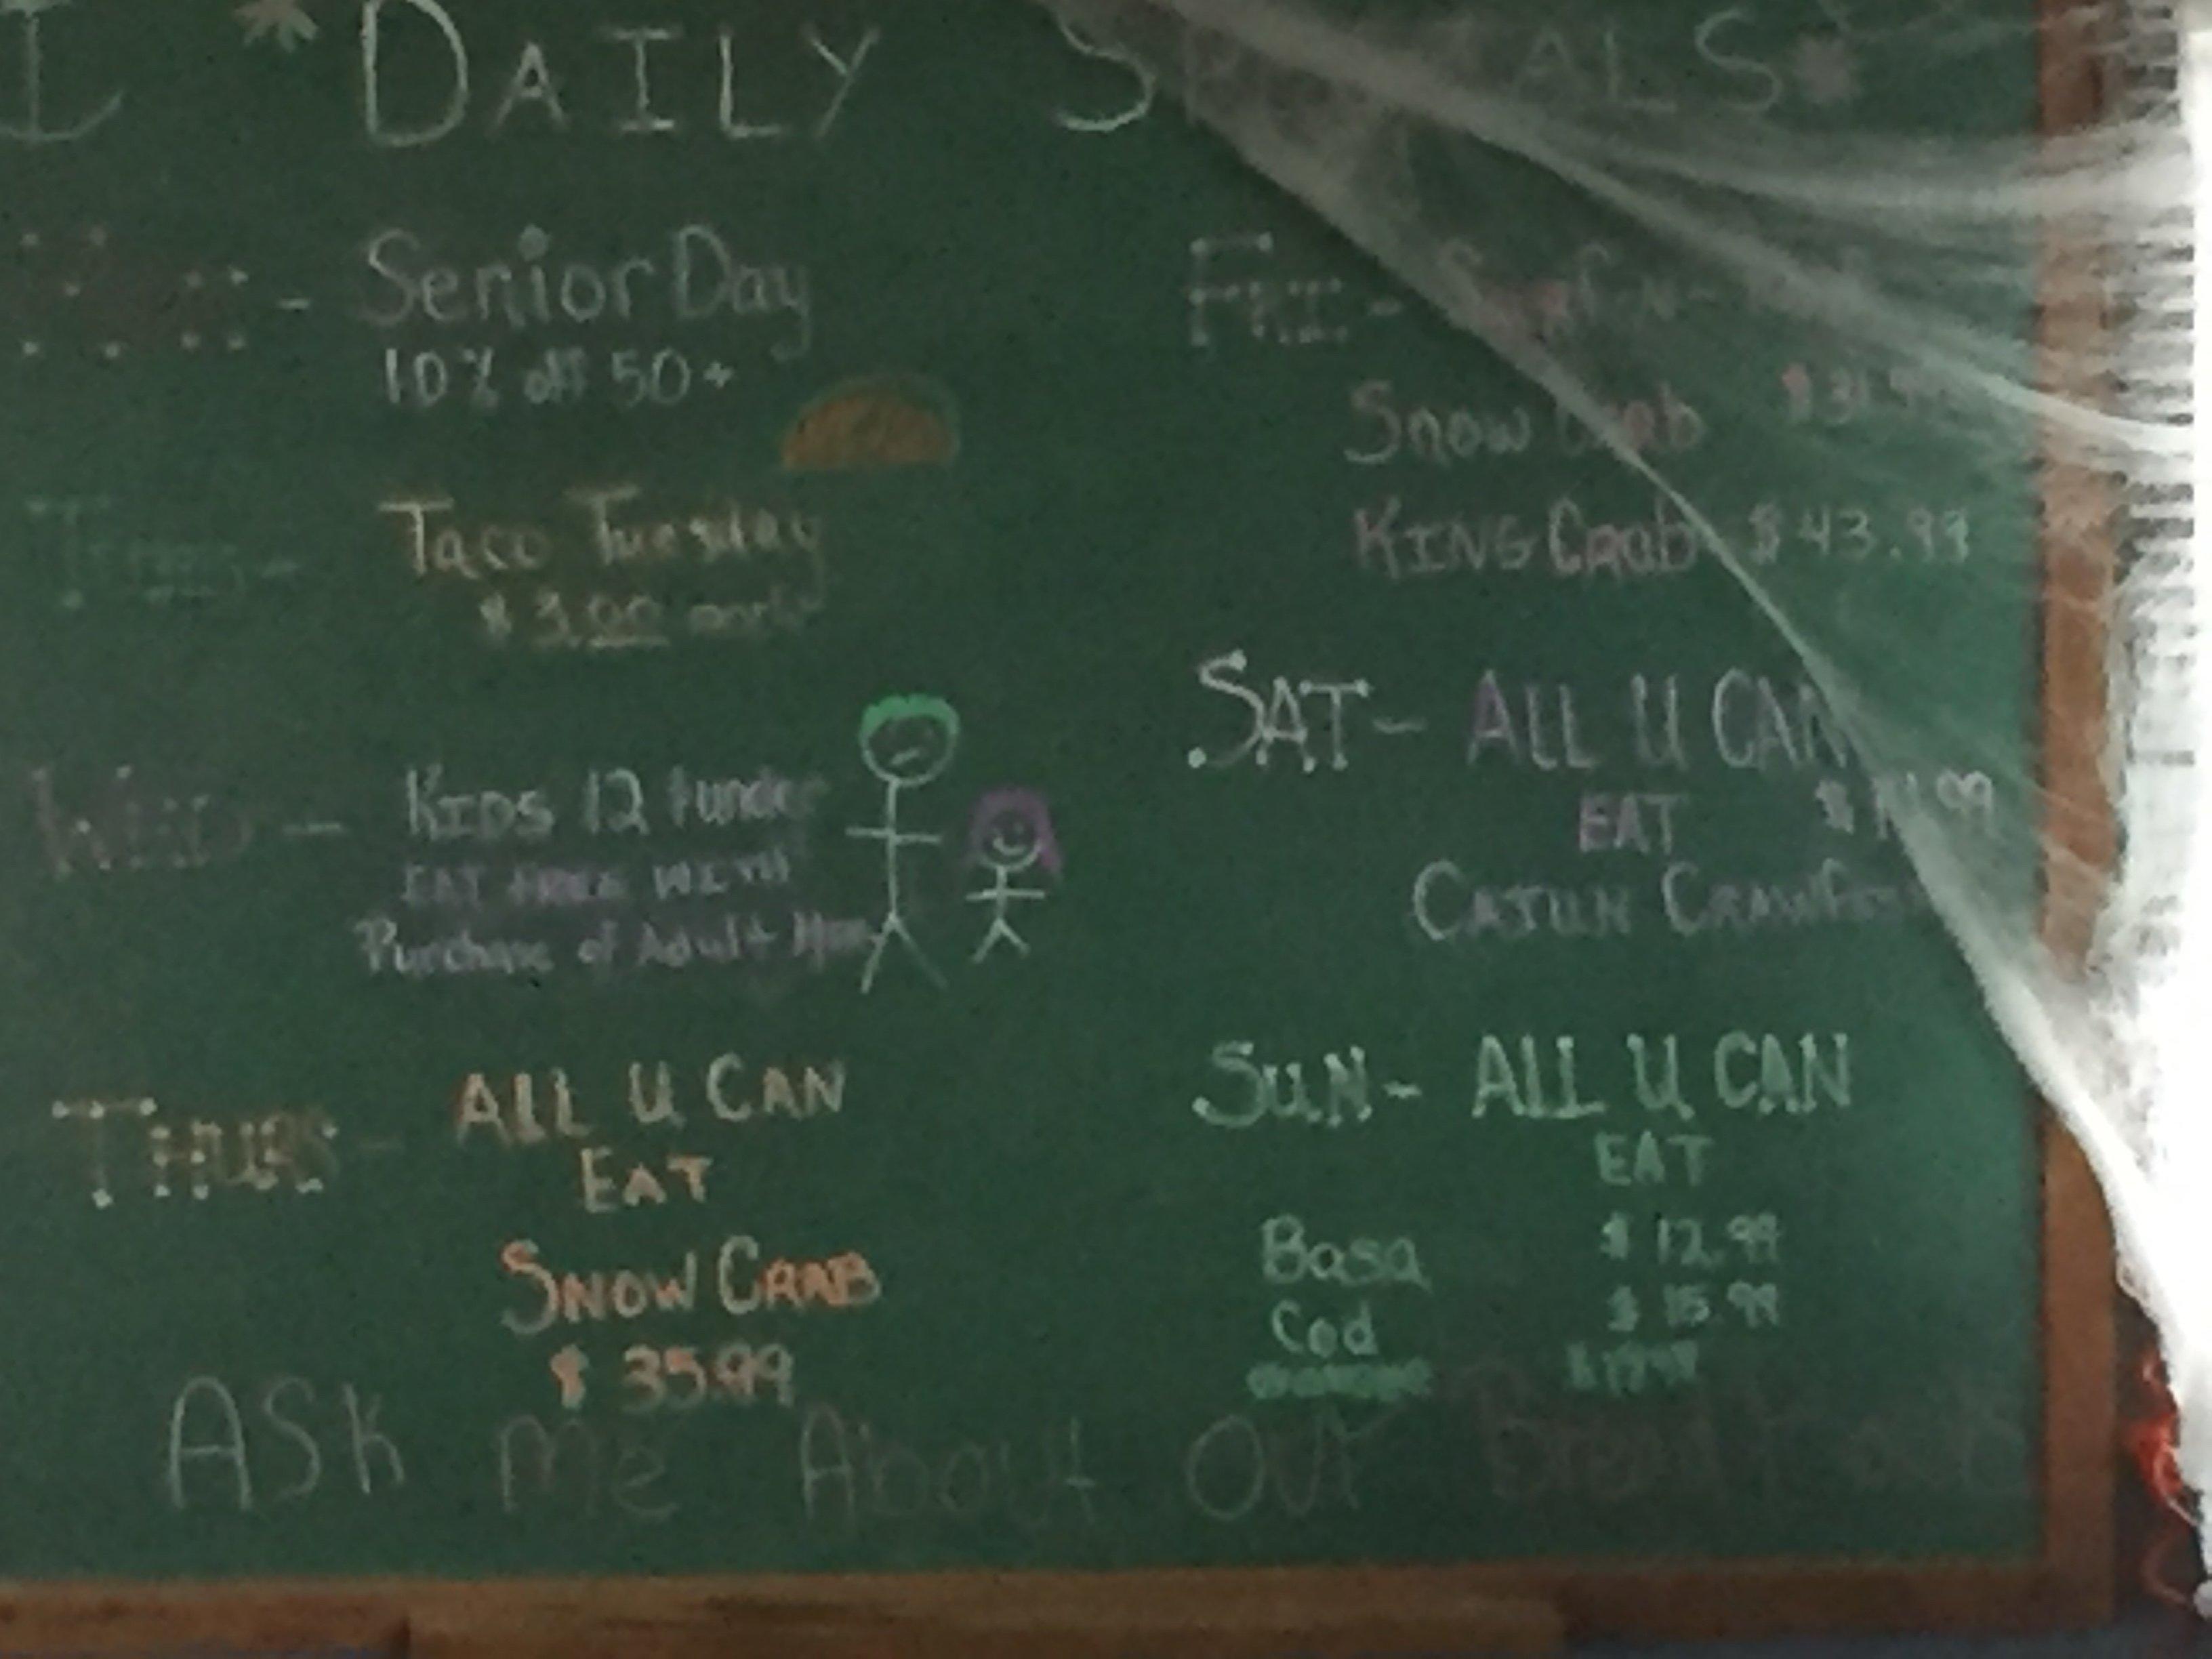 * DAILY S ALS *
- Senior Day
10% off 50+
Tues - Taco Tuesday
$3.00
WED - KIDS 12 + under
EAT FREE WITH
Purchase of Adult
THURS - ALL U CAN
EAT
SNOW CRAB
$35.99
FRI -
Snow Crab
KING CRAB $43.99
SAT - ALL U CAN
EAT
CAJUN
SUN - ALL U CAN
EAT
Basa $12.99
Cod $15.99
ASK Me About Our